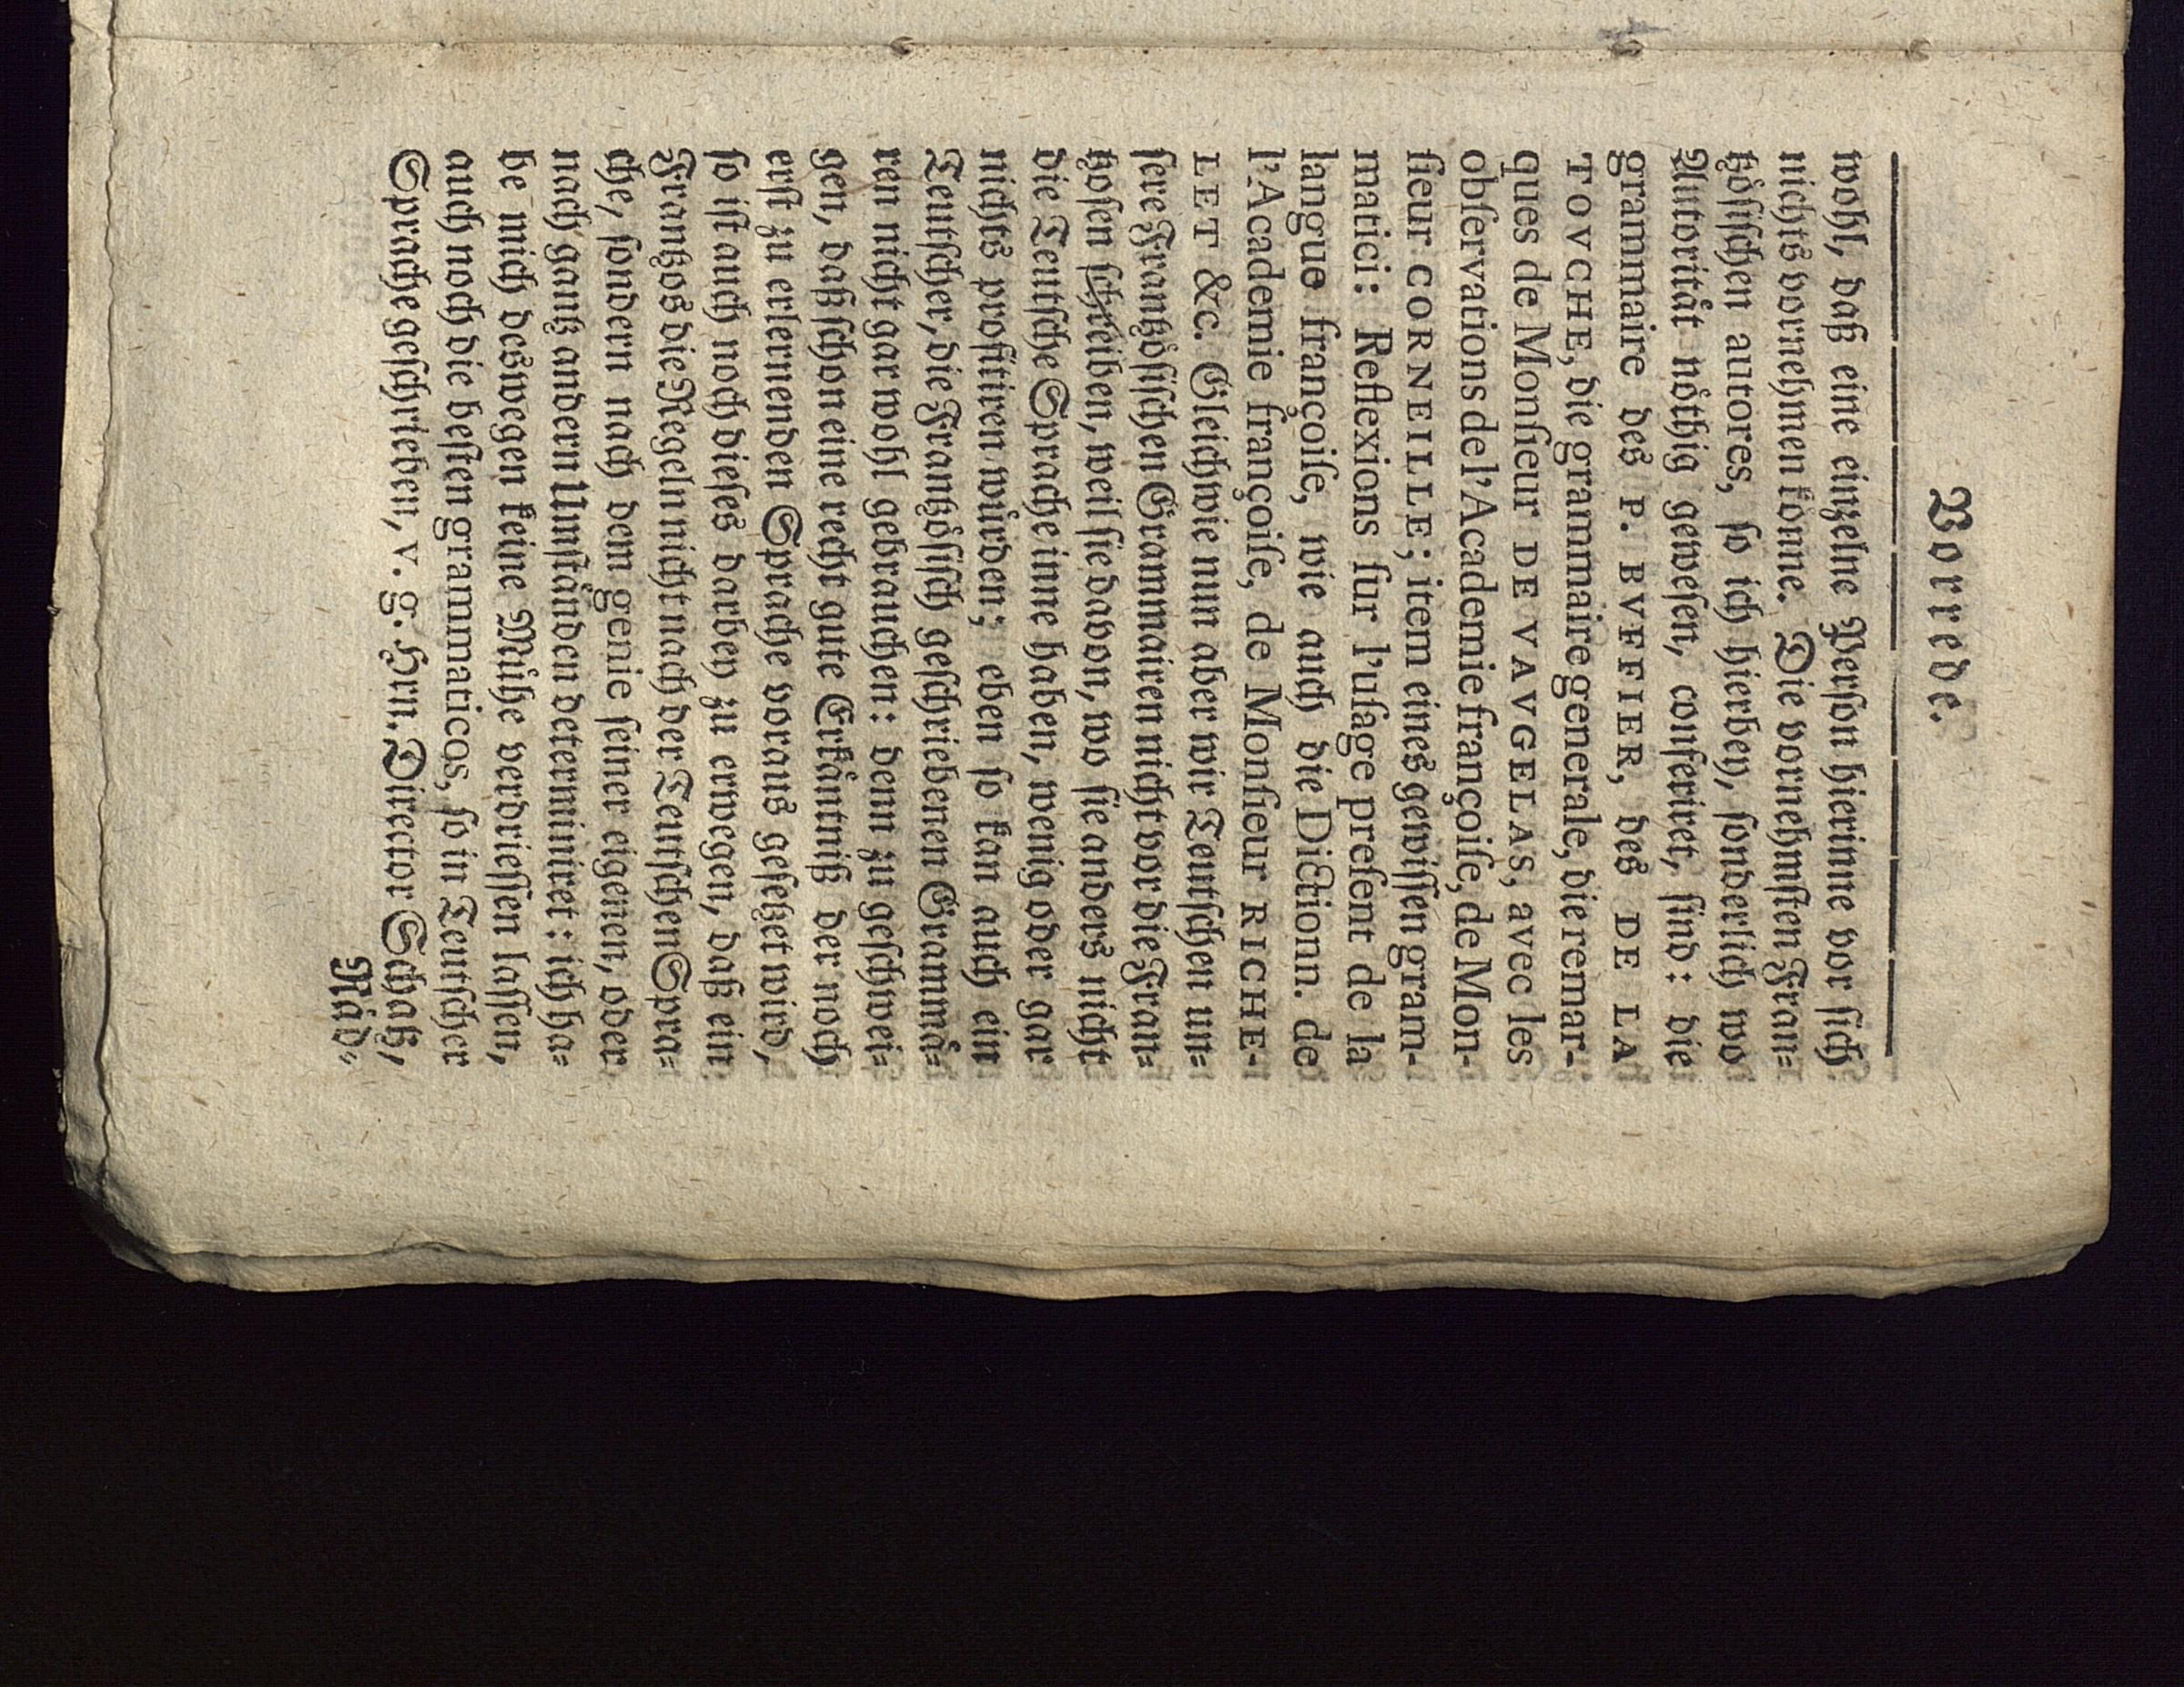 Vorrede.
wohl, daß eine einzelne Perſon hierinne vor ſich
nichts vornehmen koͤnne. Die vornehmſten Fran⸗
tzoͤſiſchen autores, ſo ich hierbey, ſonderlich wo
Autoritaͤt noͤthig geweſen, conferiret, ſind: die
grammaire des P. BVFFIER, des DE LA
TOVCHE, die grammaire generale, die remar-
ques de Monſieur DE VAVGELAS, avec les
obſervations de l'Academie françoiſe, de Mon-
ſieur CORNEILLE; item eines gewiſſen gram-
matici: Reflexions ſur l'uſage preſent de la
langue françoiſe, wie auch die Dictionn. de
l'Academie françoiſe, de Monſieur RICHE-
LET &c. Gleichwie nun aber wir Teutſchen un⸗
ſere Frantzoͤſiſchen Grammairen nicht vor die Fran⸗
tzoſen ſchreiben, weil ſie davon, wo ſie anders nicht
die Teutſche Sprache inne haben, wenig oder gar
nichts profitiren wuͤrden; eben ſo kan auch ein
Teutſcher, die Frantzoͤſiſch geſchriebenen Grammaͤ⸗
ren nicht gar wohl gebrauchen: denn zu geſchwei⸗
gen, daß ſchon eine recht gute Erkaͤntniß der noch
erſt zu erlernenden Sprache voraus geſetzet wird,
ſo iſt auch noch dieſes darbey zu erwegen, daß ein
Frantzos die Regeln nicht nach der Teutſchen Spra⸗
che, ſondern nach dem genie ſeiner eigenen, oder
nach gantz andern Umſtaͤnden determiniret: ich ha⸗
be mich deßwegen keine Muͤhe verdrieſſen laſſen,
auch noch die beſten grammaticos, ſo in Teutſcher
Sprache geſchrieben, v. g. Hrn. Director Schatz,
Maͤd⸗